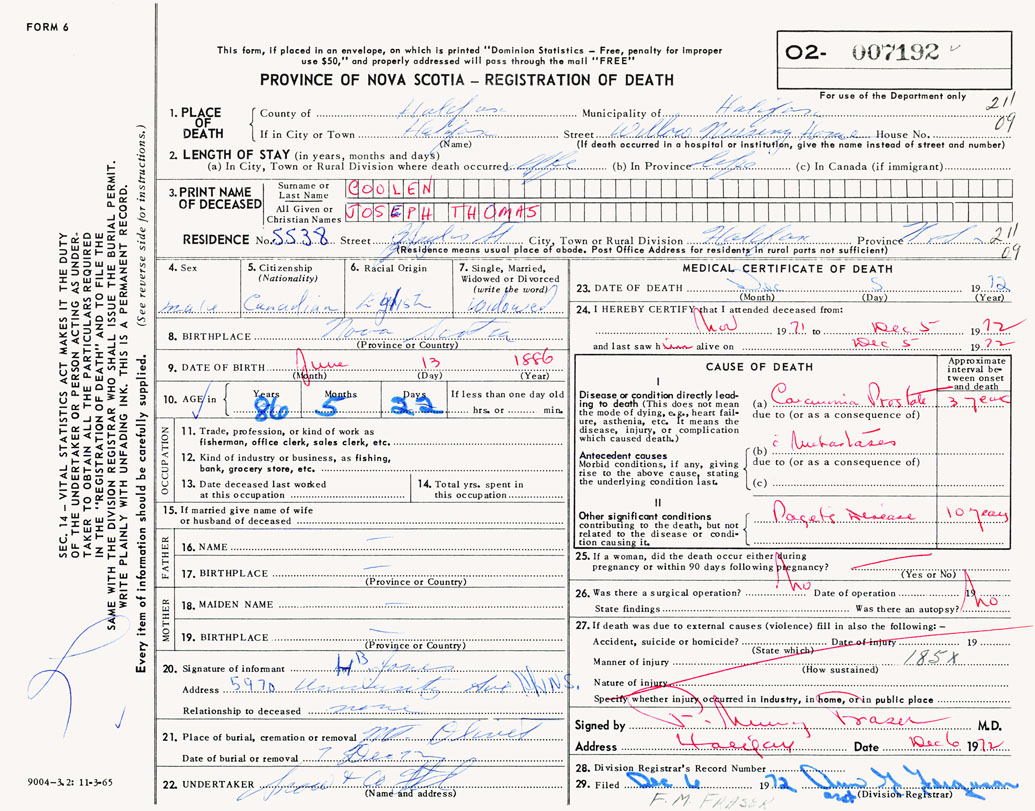 FORM 6
This form, if placed in an envelope, on which is printed "Dominion Statistics – Free, penalty for improper
use $50," and properly addressed will pass through the mail "FREE"
PROVINCE OF NOVA SCOTIA – REGISTRATION OF DEATH
O2- 007192
For use of the Department only
211
09
1. PLACE OF DEATH
County of Halifax Municipality of Halifax
If in City or Town Halifax Street Willow Nursing Home House No.
(Name) (If death occurred in a hospital or institution, give the name instead of street and number)
2. LENGTH OF STAY (in years, months and days)
(a) In City, Town or Rural Division where death occurred life (b) In Province life (c) In Canada (if immigrant)
3. PRINT NAME OF DECEASED
Surname or Last Name COOLEN
All Given or Christian Names JOSEPH THOMAS
RESIDENCE No. 5538 Street City, Town or Rural Division Halifax Province N.S. 211
09
(Residence means usual place of abode. Post Office Address for residents in rural parts not sufficient)
4. Sex
male
5. Citizenship
(Nationality)
Canadian
6. Racial Origin
English
7. Single, Married,
Widowed or Divorced
(write the word)
Widowed
8. BIRTHPLACE Nova Scotia
(Province or Country)
9. DATE OF BIRTH June 13 1886
(Month) (Day) (Year)
10. AGE in
Years Months Days If less than one day old
86 5 22 hrs. or min.
OCCUPATION
11. Trade, profession, or kind of work as
fisherman, office clerk, sales clerk, etc.
12. Kind of industry or business, as fishing,
bank, grocery store, etc.
13. Date deceased last worked
at this occupation
14. Total yrs. spent in
this occupation
15. If married give name of wife
or husband of deceased
FATHER
16. NAME
17. BIRTHPLACE
(Province or Country)
MOTHER
18. MAIDEN NAME
19. BIRTHPLACE
(Province or Country)
20. Signature of informant HB Jones
Address 5970 University Ave
Relationship to deceased none
21. Place of burial, cremation or removal Mt Olivet
Date of burial or removal 7 Dec 72
22. UNDERTAKER Snow & Co Ltd
(Name and address)
MEDICAL CERTIFICATE OF DEATH
23. DATE OF DEATH Dec 5 1972
(Month) (Day) (Year)
24. I HEREBY CERTIFY that I attended deceased from:
Nov 1971 to Dec 5 1972
and last saw him alive on Dec 5 1972
CAUSE OF DEATH
Approximate
interval be-
tween onset
and death
I
Disease or condition directly lead-
ing to death (This does not mean
the mode of dying, e.g., heart fail-
ure, asthenia, etc. It means the
disease, injury, or complication
which caused death.)
(a) Carcinoma Prostate 3 years
due to (or as a consequence of)
Antecedent causes
Morbid conditions, if any, giving
rise to the above cause, stating
the underlying condition last.
(b) c̄ Metastases
due to (or as a consequence of)
(c)
II
Other significant conditions
contributing to the death, but not
related to the disease or condi-
tion causing it.
Pagets Disease 10 years
25. If a woman, did the death occur either during
pregnancy or within 90 days following pregnancy?
(Yes or No)
26. Was there a surgical operation? No Date of operation 19
State findings Was there an autopsy? No
27. If death was due to external causes (violence) fill in also the following: –
Accident, suicide or homicide? Date of injury 19
(State which)
Manner of injury 185X
(How sustained)
Nature of injury
Specify whether injury occurred in Industry, in home, or in public place
Signed by Fraser M.D.
Address Halifax Date Dec 6 1972
28. Division Registrar's Record Number
29. Filed Dec 6 1972 Ferguson
(Division Registrar)
F. M. FRASER
SEC. 14 – VITAL STATISTICS ACT MAKES IT THE DUTY
OF THE UNDERTAKER OR PERSON ACTING AS UNDER-
TAKER TO OBTAIN ALL THE PARTICULARS REQUIRED
IN THE "REGISTRATION OF DEATH" AND TO FILE THE
SAME WITH THE DIVISION REGISTRAR WHO SHALL ISSUE THE BURIAL PERMIT.
WRITE PLAINLY WITH UNFADING INK. THIS IS A PERMANENT RECORD.
Every item of information should be carefully supplied. (See reverse side for instructions.)
9004–3.2: 11-3-65